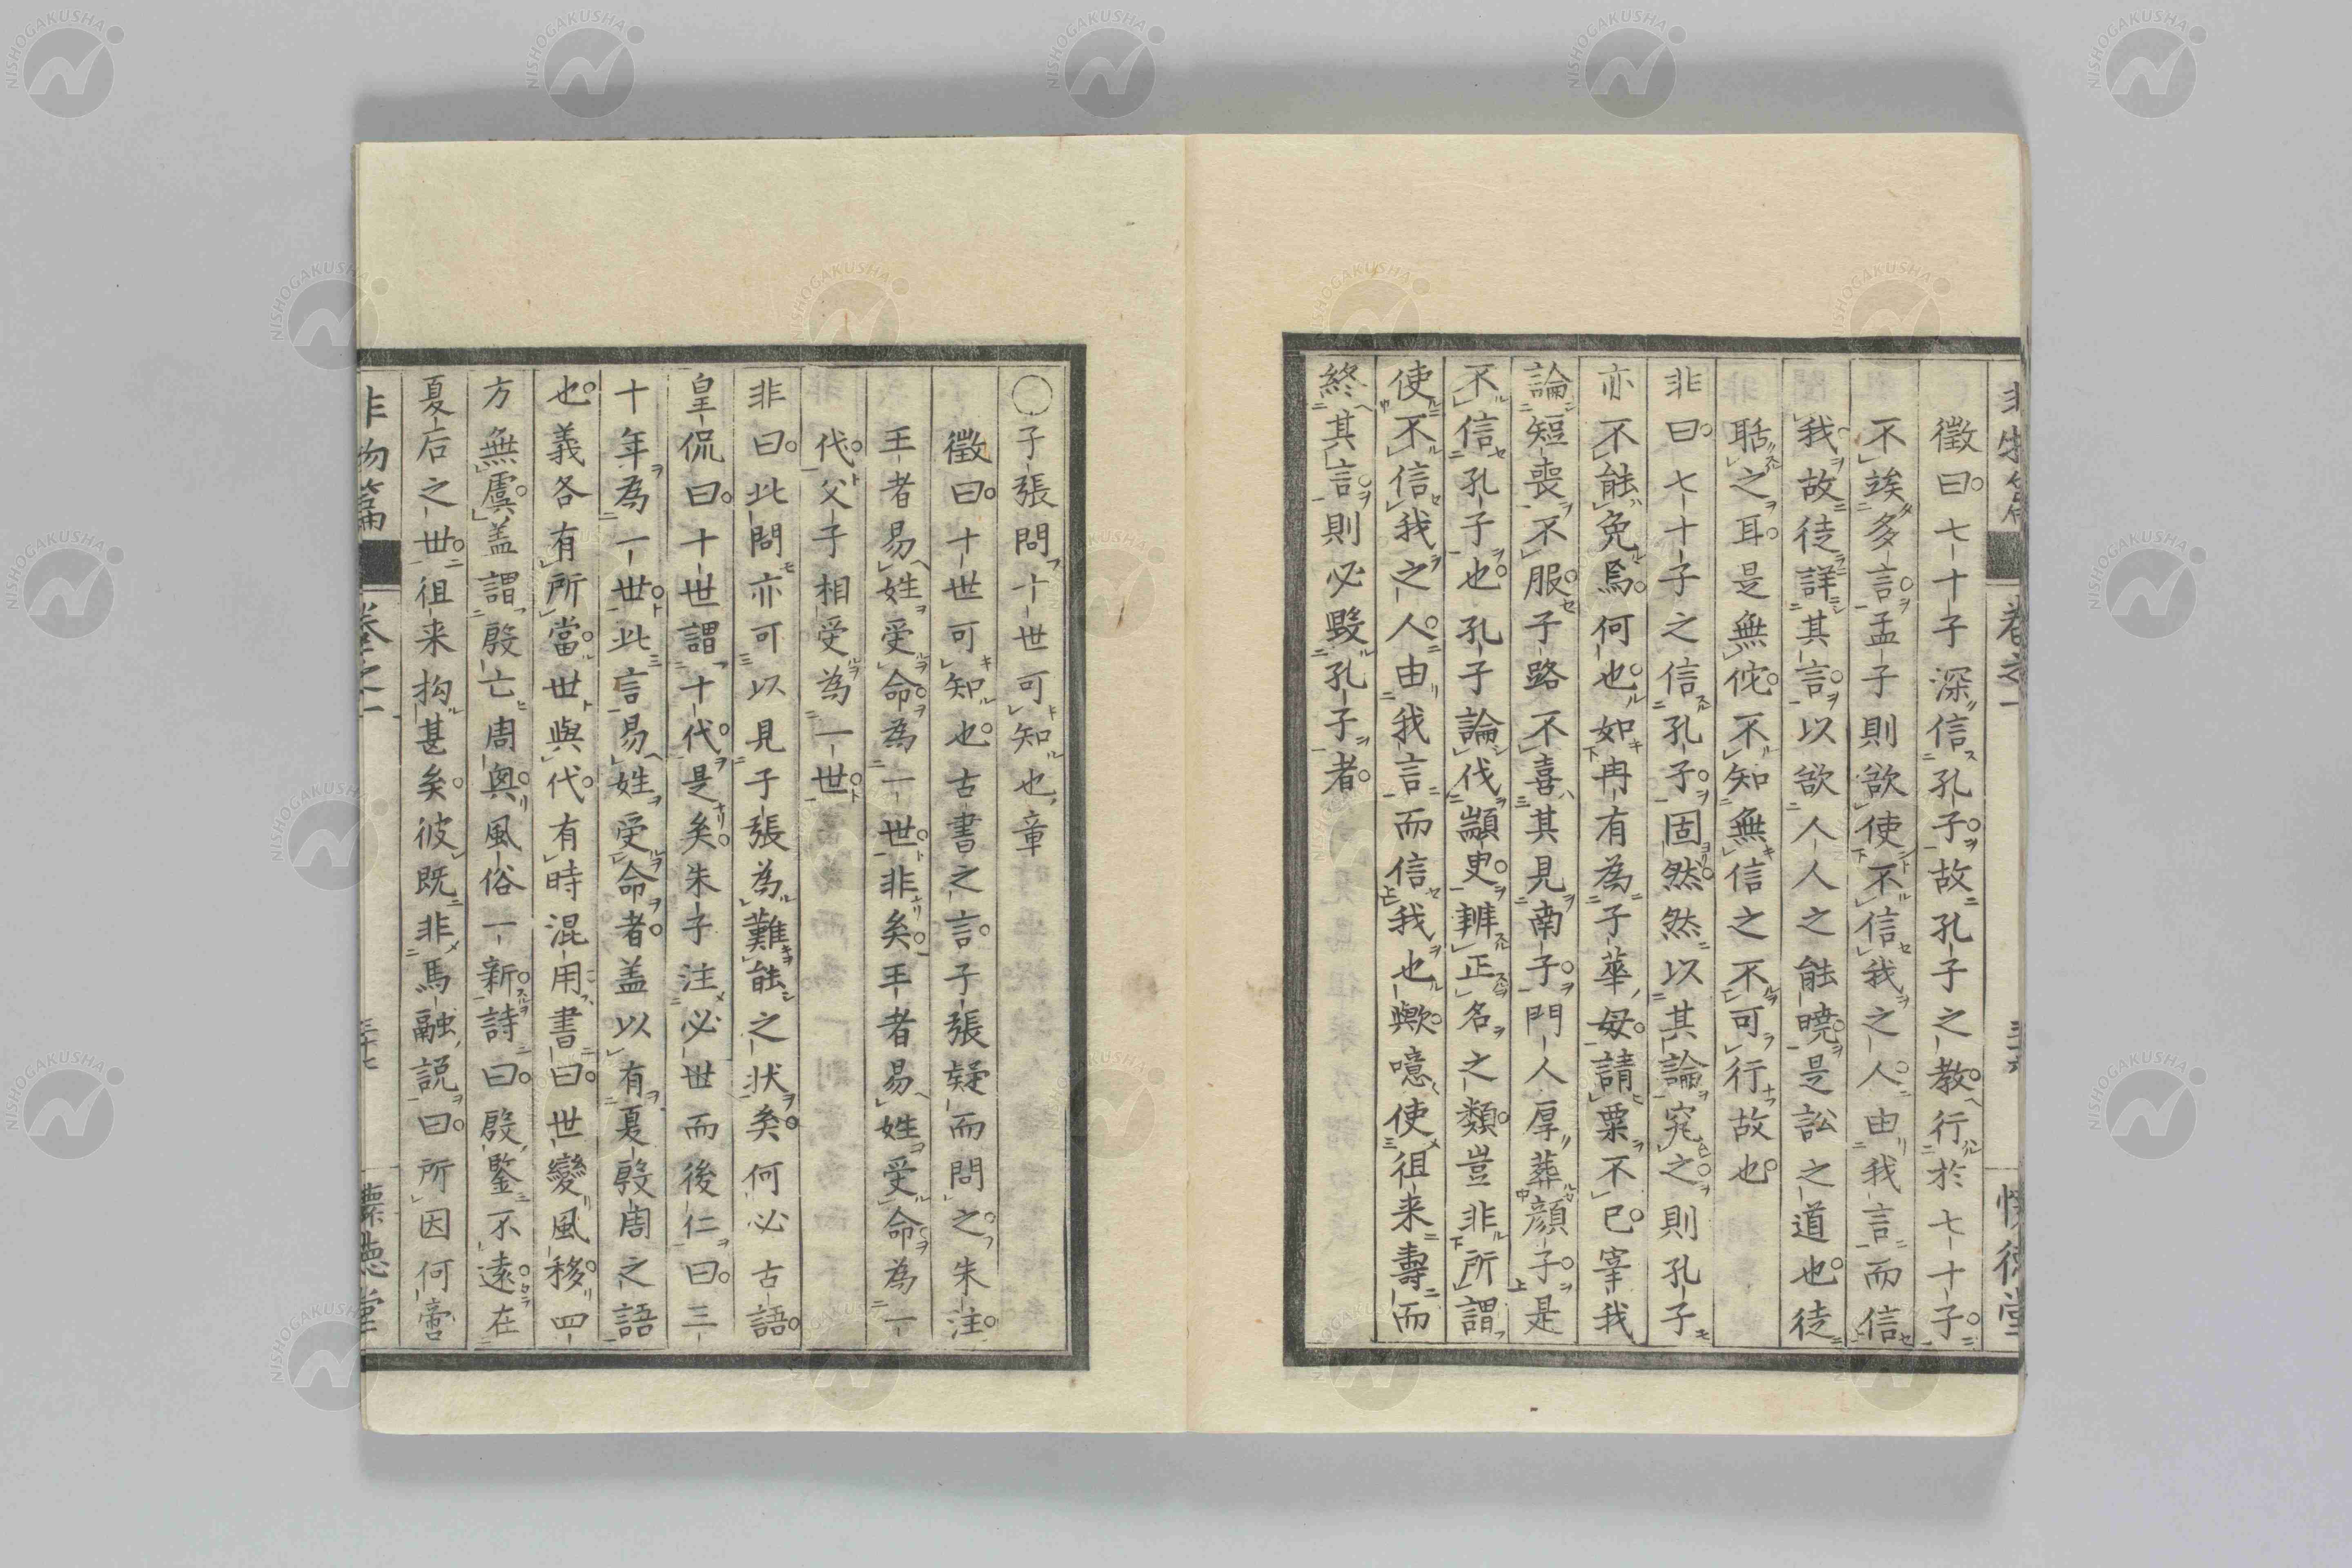 徴曰七十子深信孔子故孔子之教行於七十子
不竢多言孟子則欲使不信我之人由我言而信
我故徒詳其言以欲人人之能曉是訟之道也徒
聒之耳是無侘不知無信之不可行故也
非曰七十子之信孔子固然然以其論究之則孔子
亦不能免焉何也如冉有為子華母請粟不已宰我
論短喪不服子路不喜其見南子門人厚葬顔子是
不信孔子也孔子論伐顓臾辨正名之類豈非所謂
使不信我之人由我言而信我也歟噫使徂来壽而
終其言則必毀孔子者
非物篇 卷之一 懐徳堂
○子張問十世可知也章
徴曰十世可知也古書之言子張疑而問之朱注
王者易姓受命為一世非矣王者易姓受命為一
代父子相受為一世
非曰此問亦可以見子張為難能之状矣何必古語
皇侃曰十世謂十代是矣朱子注必世而後仁曰三
十年為一世此言易姓受命者盖以有夏殷周之語
也義各有所當世與代有時混用書曰世變風移四
方無虞盖謂殷亡周興風俗一新詩曰殷鑒不遠在
夏后之世徂来拘甚矣彼既非馬融説曰所因何啻
非物篇 卷之一 三十七 懐徳堂
NISHOGAKUSHA